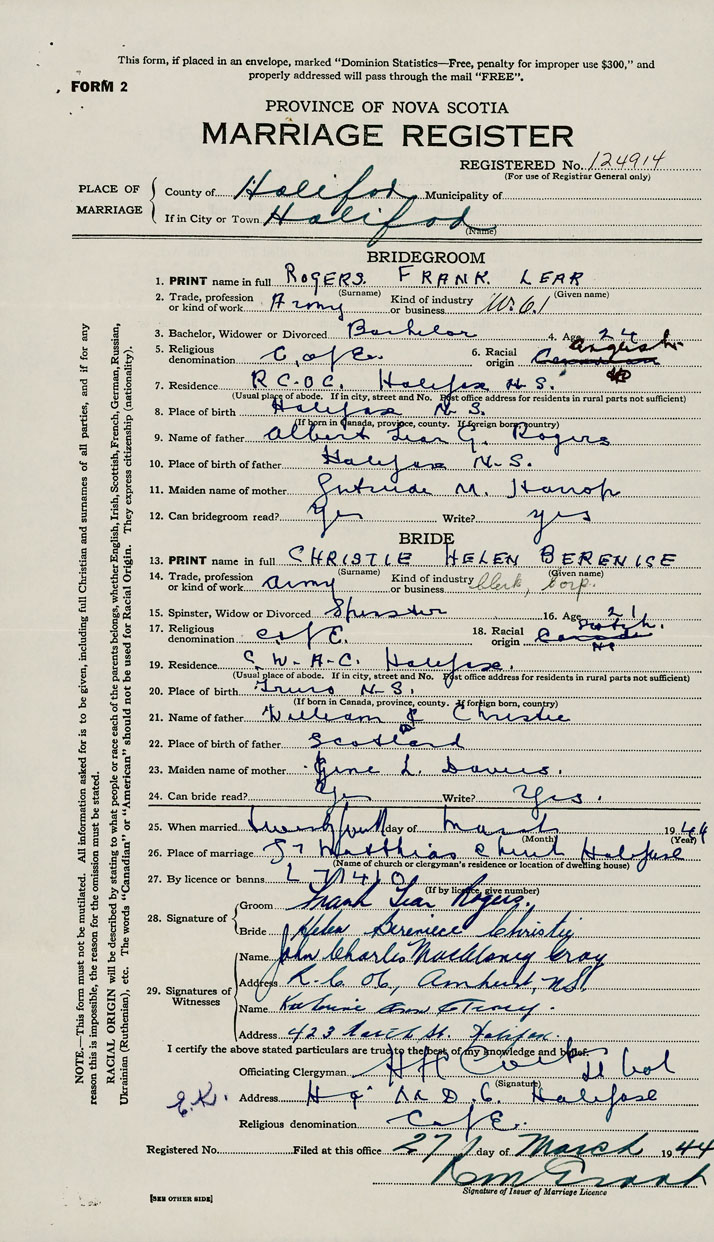 This form, if placed in an envelope, marked "Dominion Statistics—Free, penalty for improper use $300," and
properly addressed will pass through the mail "FREE".
FORM 2
PROVINCE OF NOVA SCOTIA
MARRIAGE REGISTER
REGISTERED No. 124914
(For use of Registrar General only)
PLACE OF MARRIAGE
County of Halifax Municipality of
If in City or Town Halifax
(Name)
BRIDEGROOM
1. PRINT name in full ROGERS FRANK LEAR
(Surname) (Given name)
2. Trade, profession or kind of work Army Kind of industry or business
3. Bachelor, Widower or Divorced Bachelor 4. Age 24
5. Religious denomination C. of E. 6. Racial origin Canadian English
7. Residence R.C.O.C. Halifax N.S.
(Usual place of abode. If in city, street and No. Post office address for residents in rural parts not sufficient)
8. Place of birth Halifax N.S.
(If born in Canada, province, county. If foreign born, country)
9. Name of father Albert Lear G. Rogers
10. Place of birth of father Halifax N.S.
11. Maiden name of mother Gertrude M. Harrop
12. Can bridegroom read? Yes Write? yes
BRIDE
13. PRINT name in full CHRISTIE HELEN BERENICE
(Surname) (Given name)
14. Trade, profession or kind of work Army Kind of industry or business Clerk, Corp.
15. Spinster, Widow or Divorced Spinster 16. Age 21
17. Religious denomination C of E. 18. Racial origin Canadian Scotch.
19. Residence C.W.A.C. Halifax.
(Usual place of abode. If in city, street and No. Post office address for residents in rural parts not sufficient)
20. Place of birth Truro N.S.
(If born in Canada, province, county. If foreign born, country)
21. Name of father William Christie
22. Place of birth of father Scotland
23. Maiden name of mother L. Davis.
24. Can bride read? Yes Write? Yes.
25. When married day of March 1944
(Month) (Year)
26. Place of marriage St Matthias Church Halifax
(Name of church or clergyman's residence or location of dwelling house)
27. By licence or banns L 71410
(If by licence, give number)
28. Signature of
Groom Frank Lear Rogers.
Bride Helen Bereniece Christie
29. Signatures of Witnesses
Name John Charles Gray
Address Amherst, N.S.
Name Ann
Address 423 St. Halifax.
I certify the above stated particulars are true to the best of my knowledge and belief.
Officiating Clergyman
(Signature)
E.K.
Address Hq M.D. 6. Halifax
Religious denomination C of E.
Registered No. Filed at this office 27 day of March 1944
Signature of Issuer of Marriage Licence
[SEE OTHER SIDE]
NOTE.—This form must not be mutilated. All information asked for is to be given, including full Christian and surnames of all parties, and if for any
reason this is impossible, the reason for the omission must be stated.
RACIAL ORIGIN will be described by stating to what people or race each of the parents belongs, whether English, Irish, Scottish, French, German, Russian,
Ukrainian (Ruthenian), etc. The words "Canadian" or "American" should not be used for Racial Origin. They express citizenship (nationality).